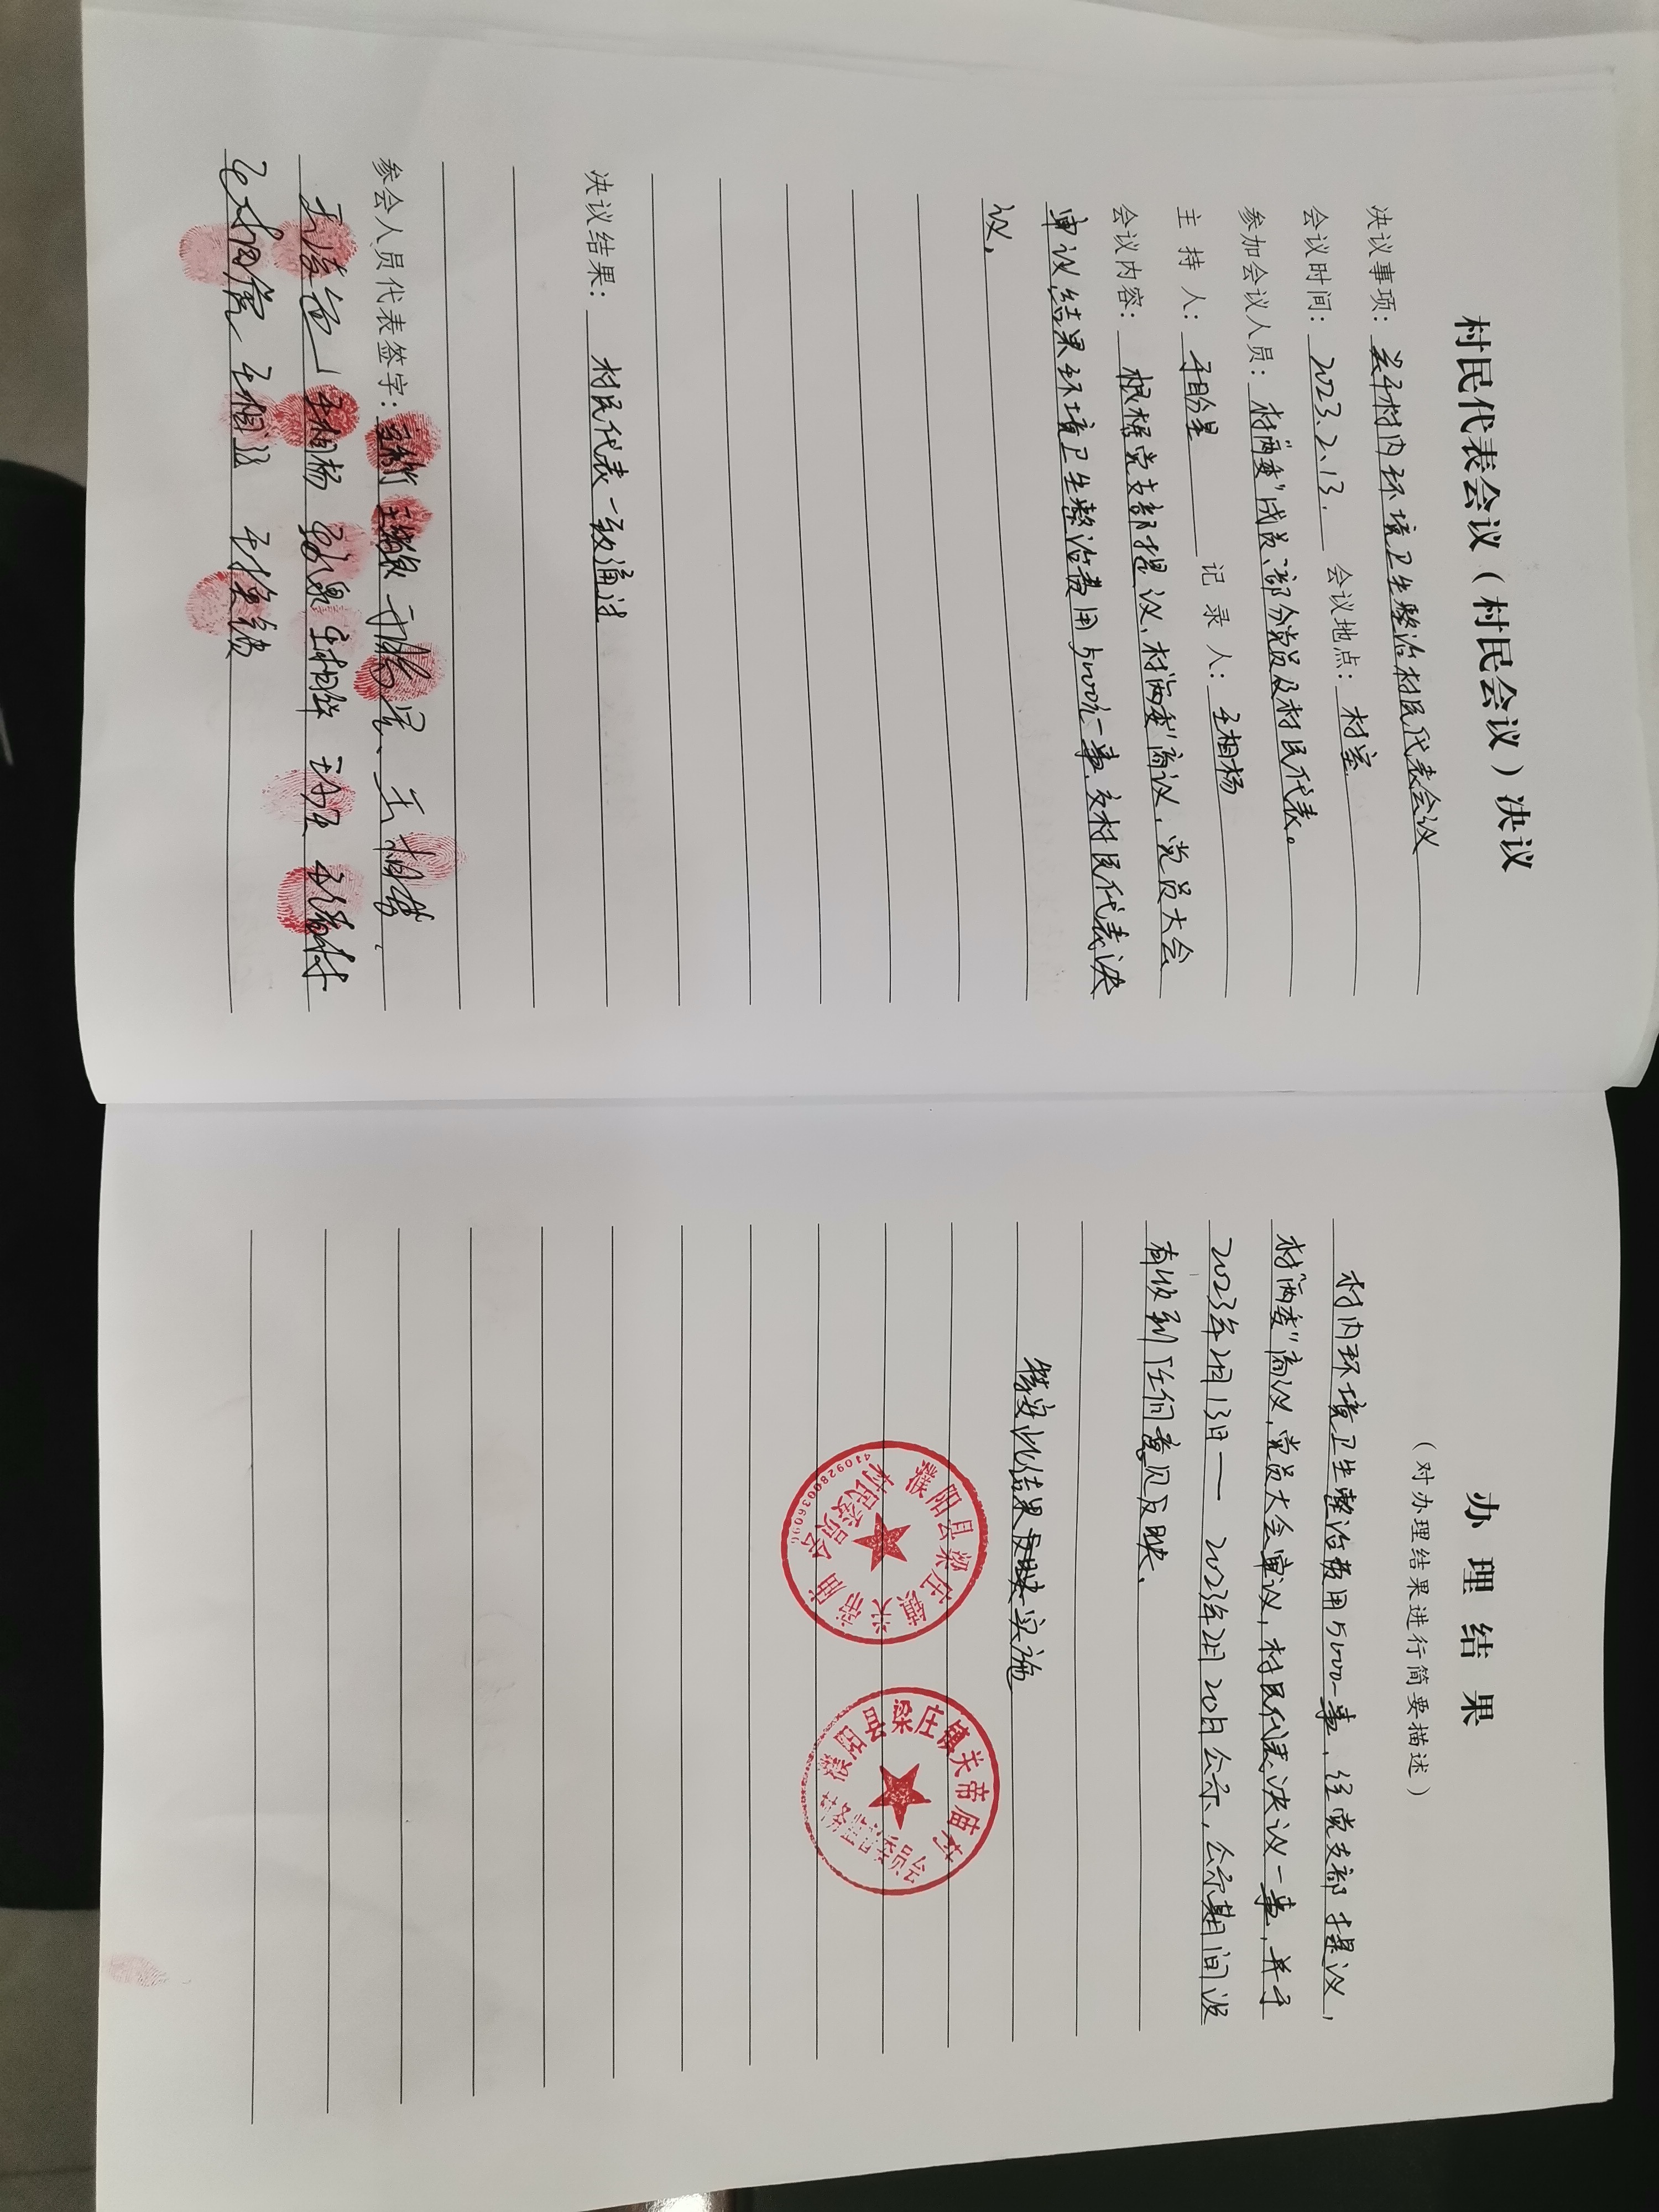 村民代表会议（村民会议）决议
决议事项：关于村内环境卫生整治村民代表会议
会议时间：2023.2.13. 会议地点：村室.
参加会议人员：村"两委"成员、部分党员及村民代表。
主持人：于盼星 记录人：王相杨
会议内容：根据党支部提议，村"两委"商议，党员大会
审议，结果环境卫生整治费用5000元一事，交村民代表决
议。
决议结果：村民代表一致通过
参会人员代表签字：于盼星、王相
王相杨 王相华
王相虎 王相 王换锁
办理结果
（对办理结果进行简要描述）
村内环境卫生整治费用5000一事，经党支部提议，
村"两委"商议，党员大会审议，村民代表决议一事，并于
2023年2月13日—2023年2月20日公示，公示期间没
有收到任何意见反映.
特安此结果反映实施
濮阳县梁庄镇关帝庙
村民委员会
4109280036096
濮阳县梁庄镇关帝庙村
村务监督委员会